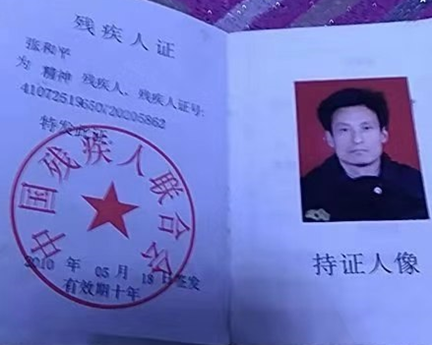 残疾人证
张和平
为 精神 残疾人、残疾人证号:
41072519650720205862
特发此证
中国残疾人联合会
2010 年 05 月 18 日签发
有效期十年
持证人像